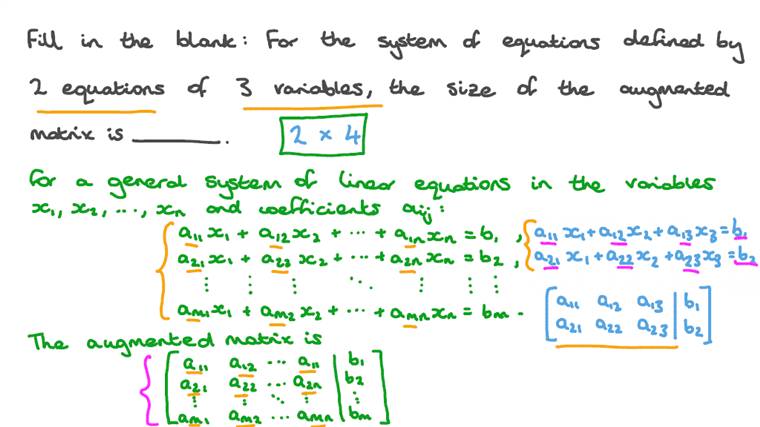 Fill in the blank: For the system of equations defined by
2 equations of 3 variables, the size of the augmented
matrix is ________. 2 × 4
For a general system of linear equations in the variables
x₁, x₂, ..., xₙ and coefficients aᵢⱼ:
a₁₁x₁ + a₁₂x₂ + ⋯ + a₁ₙxₙ = b₁ , a₁₁x₁+a₁₂x₂+a₁₃x₃=b₁
a₂₁x₁ + a₂₂x₂ + ⋯ + a₂ₙxₙ = b₂ , a₂₁x₁+a₂₂x₂+a₂₃x₃=b₂
⋮ ⋮ ⋮ ⋱ ⋮ ⋮ ⋮
aₘ₁x₁ + aₘ₂x₂ + ⋯ + aₘₙxₙ = bₘ .
a₁₁ a₁₂ a₁₃ | b₁
a₂₁ a₂₂ a₂₃ | b₂
The augmented matrix is
a₁₁ a₁₂ ⋯ a₁₁ | b₁
a₂₁ a₂₂ ⋯ a₂ₙ | b₂
⋮ ⋮ ⋱ ⋮ | ⋮
aₘ₁ aₘ₂ ⋯ aₘₙ | bₘ